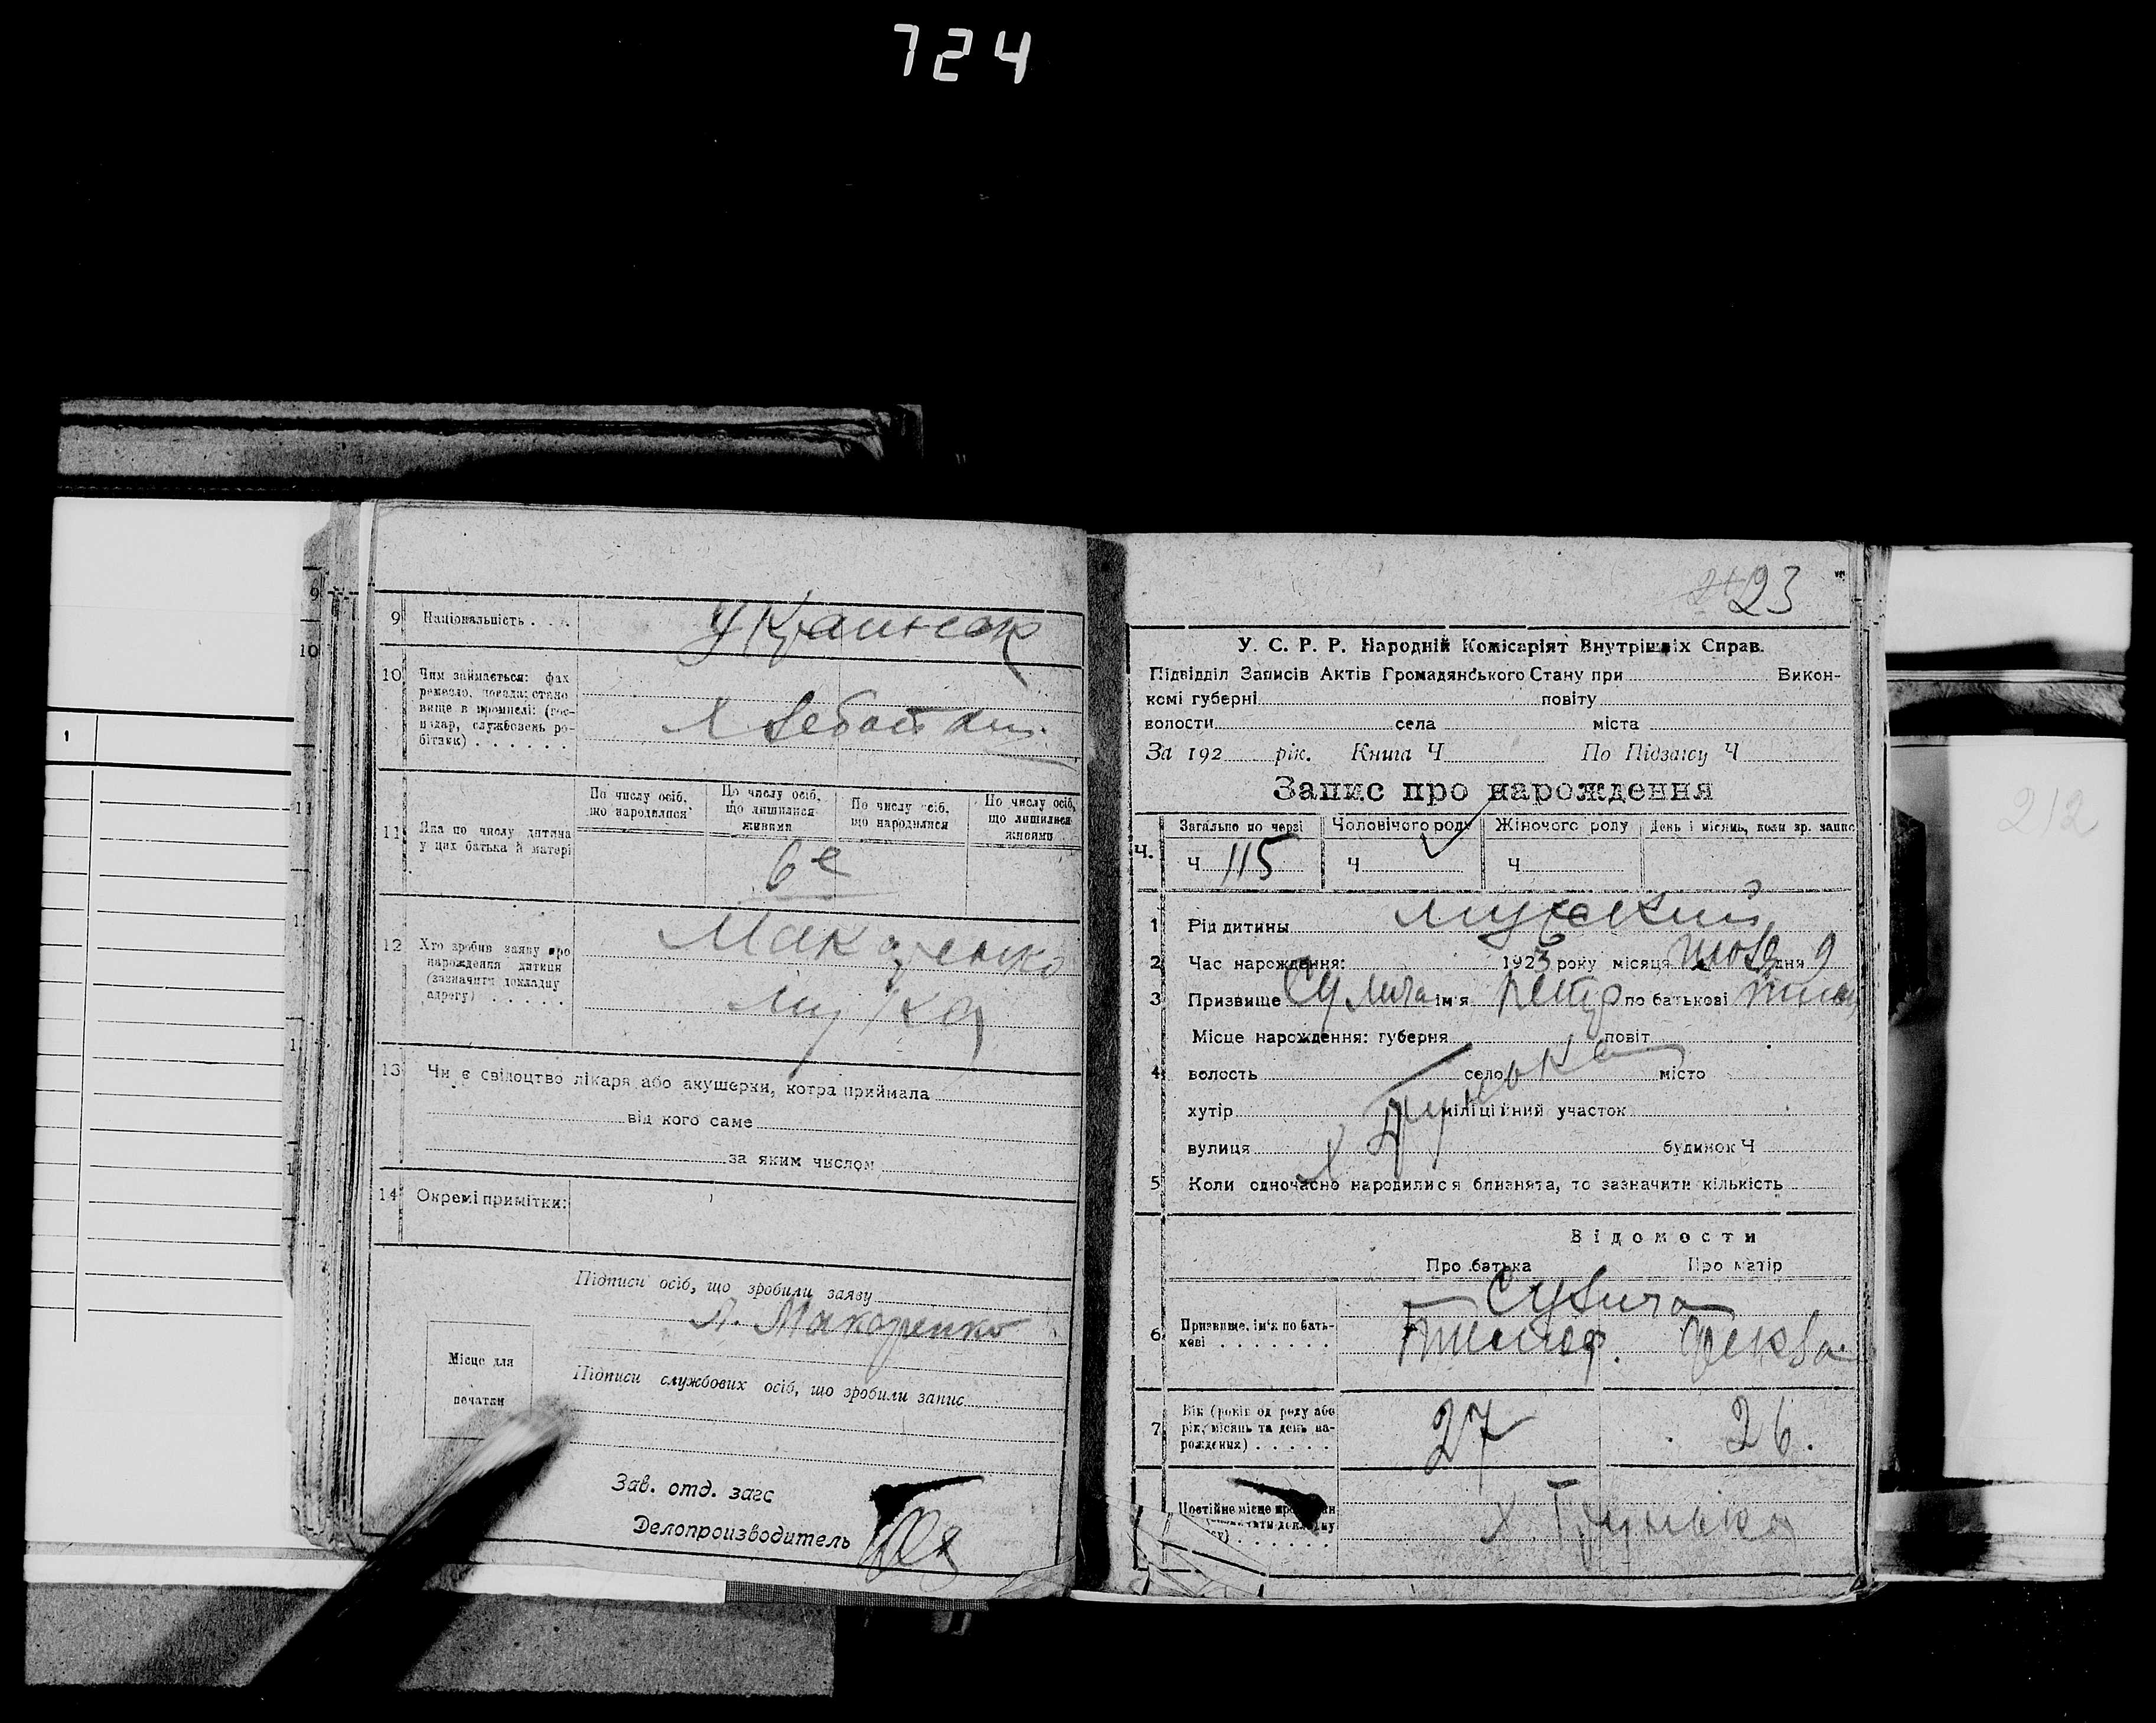 724
9 Національність . . .
Украинск
10 Чим займається: фах
ремесло, посада: стано
вище в промислі: (гос-
подар, службовець ро-
бітник) . . . . . .
Хлебопаш.
11 Яка по числу дитина
у цих батька й матері
По числу осіб,
що народилися
По числу осіб,
що лишилися
живими
По числу осіб,
що народилися
По числу осіб,
що лишилися
живими
6е
12 Хто зробив заяву про
нарождення дитини
(зазначити докладну
адресу) . . . . . .
Макаренко
13 Чи є свідоцтво лікаря або акушерки, котра приймала
від кого саме
за яким числом
14 Окремі примітки:
Підписи осіб, що зробили заяву
Макаренко
Місце для
печатки
Підписи службових осіб, що зробили запис
Зав. отд. загс
Делопроизводитель
23
У. С. Р. Р. Народній Комісаріят Внутрішніх Справ.
Підвідділ Записів Актів Громадянського Стану при Викон-
комі губерні повіту
волости села міста
За 192 рік. Книга Ч По Підзагсу Ч
Запис про нарождення
Ч. Загально по черзі Чоловічого роду Жіночого роду День і місяць, коли зр. запис
Ч 115 Ч Ч
1 Рід дитины мужский
2 Час нарождення: 1923 року місяця июля дня 9
3 Призвище ім'я Петр по батькові
Місце нарождення: губерня повіт
4 волость село місто
хутір міліційний участок
вулиця будинок Ч
5 Коли одночасно народилися близнята, то зазначити кількість
Відомости
Про батька Про матір
6 Призвище, ім'я по бать-
кові . . . . . . .
Фекла
7 Вік (років од роду або
рік, місяць та день на-
рождення) . . . . .
27 26.
Постійне місце
Х.
1
212